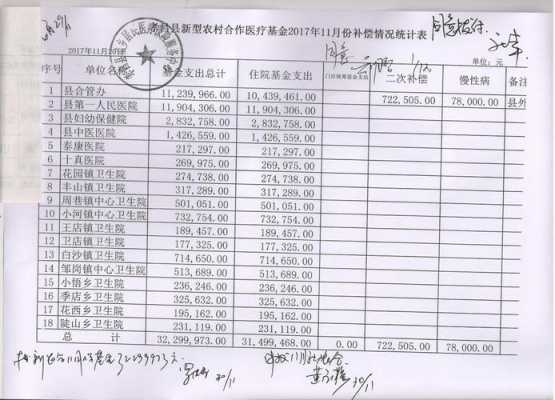 同意拨付
县新型农村合作医疗基金2017年11月份补偿情况统计表
同意
2017年11月2 日 单位:元
序号 单位名 基金支出总计 住院基金支出 二次补偿 慢性病 备注
1 县合管办 11,239,966.00 10,439,461.00 722,505.00 78,000.00 县外
2 县第一人民医院 11,904,306.00 11,904,306.00
3 县妇幼保健院 2,832,758.00 2,832,758.00
4 县中医医院 1,426,559.00 1,426,559.00
5 泰康医院 217,297.00 217,297.00
6 十真医院 269,975.00 269,975.00
7 花园镇卫生院 274,738.00 274,738.00
8 丰山镇卫生院 317,289.00 317,289.00
9 周巷镇中心卫生院 501,051.00 501,051.00
10 小河镇中心卫生院 732,754.00 732,754.00
11 王店镇卫生院 189,457.00 189,457.00
12 卫店镇卫生院 177,325.00 177,325.00
13 白沙镇卫生院 714,650.00 714,650.00
14 邹岗镇中心卫生院 513,689.00 513,689.00
15 小悟乡卫生院 316,206.00 316,206.00
16 季店乡卫生院 325,632.00 325,632.00
17 花西乡卫生院 195,162.00 195,162.00
18 陡山乡卫生院 231,119.00 231,119.00
总 计 32,299,973.00 31,499,468.00 0.00 722,505.00 78,000.00
30/11 30/11